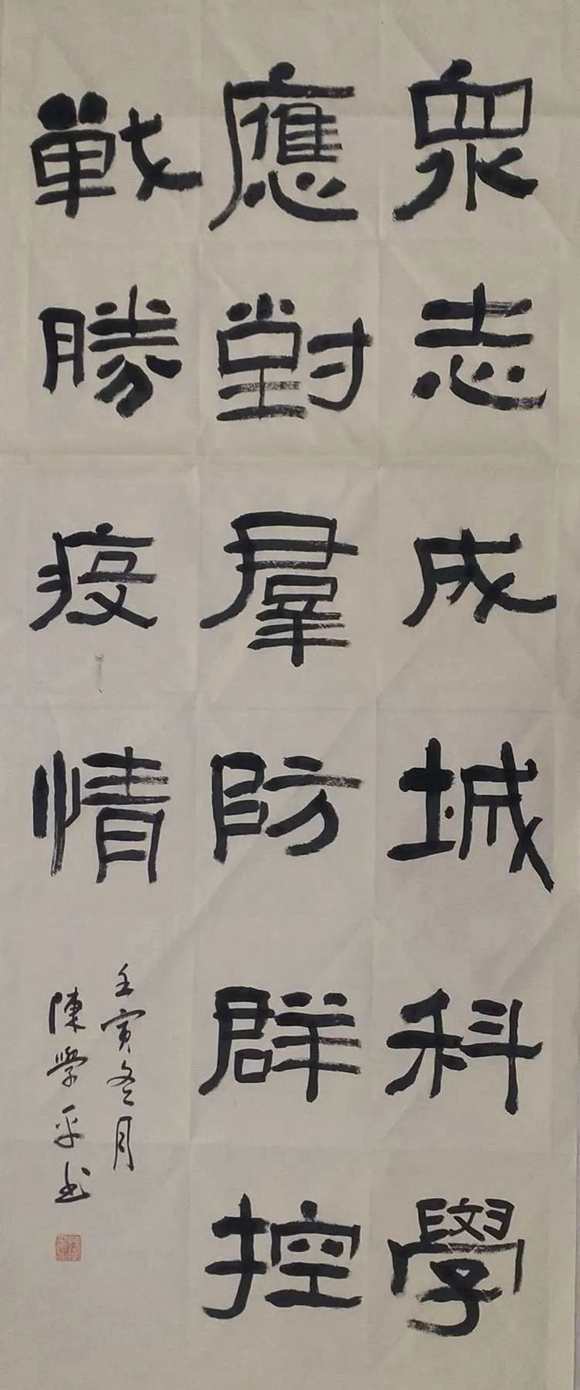 眾志成城科學
應對羣防群控
戰勝疫情
壬寅冬月
陳學平书